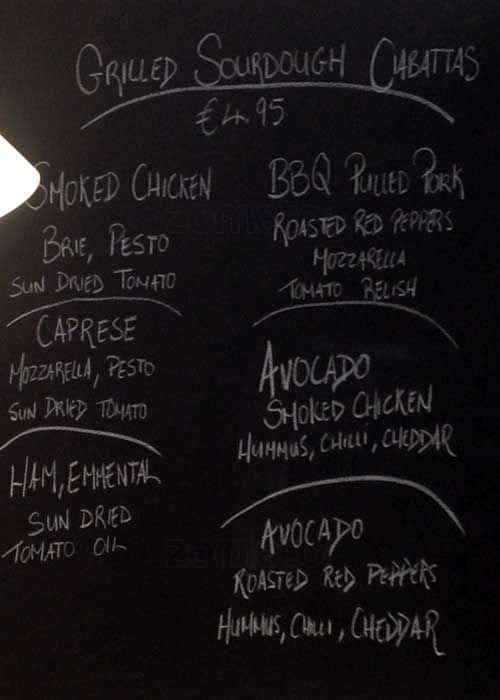 GRILLED SOURDOUGH CIABATTAS
€4.95
SMOKED CHICKEN
BRIE, PESTO
SUN DRIED TOMATO
CAPRESE
MOZZARELLA, PESTO
SUN DRIED TOMATO
HAM, EMMENTAL
SUN DRIED
TOMATO OIL
BBQ PULLED PORK
ROASTED RED PEPPERS
MOZZARELLA
TOMATO RELISH
AVOCADO
SMOKED CHICKEN
HUMMUS, CHILLI, CHEDDAR
AVOCADO
ROASTED RED PEPPERS
HUMMUS, CHILLI, CHEDDAR